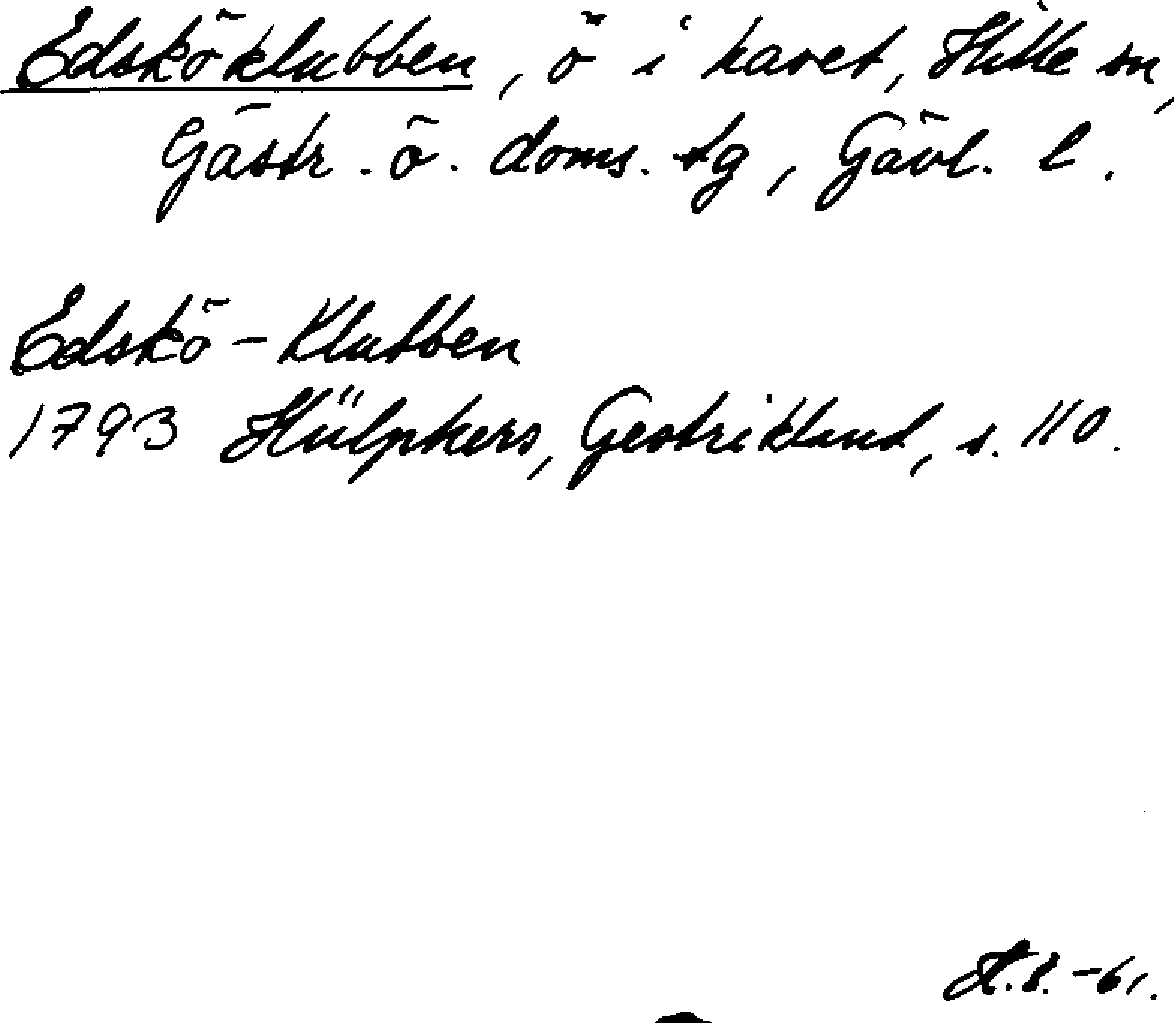 Edsköklubben, ö i havet, Hille sn,
Gästr. ö. doms. tg, Gävl. l.
Edskö-Klubben
1793 Hülphers, Gestrikland, s. 110.
-61.